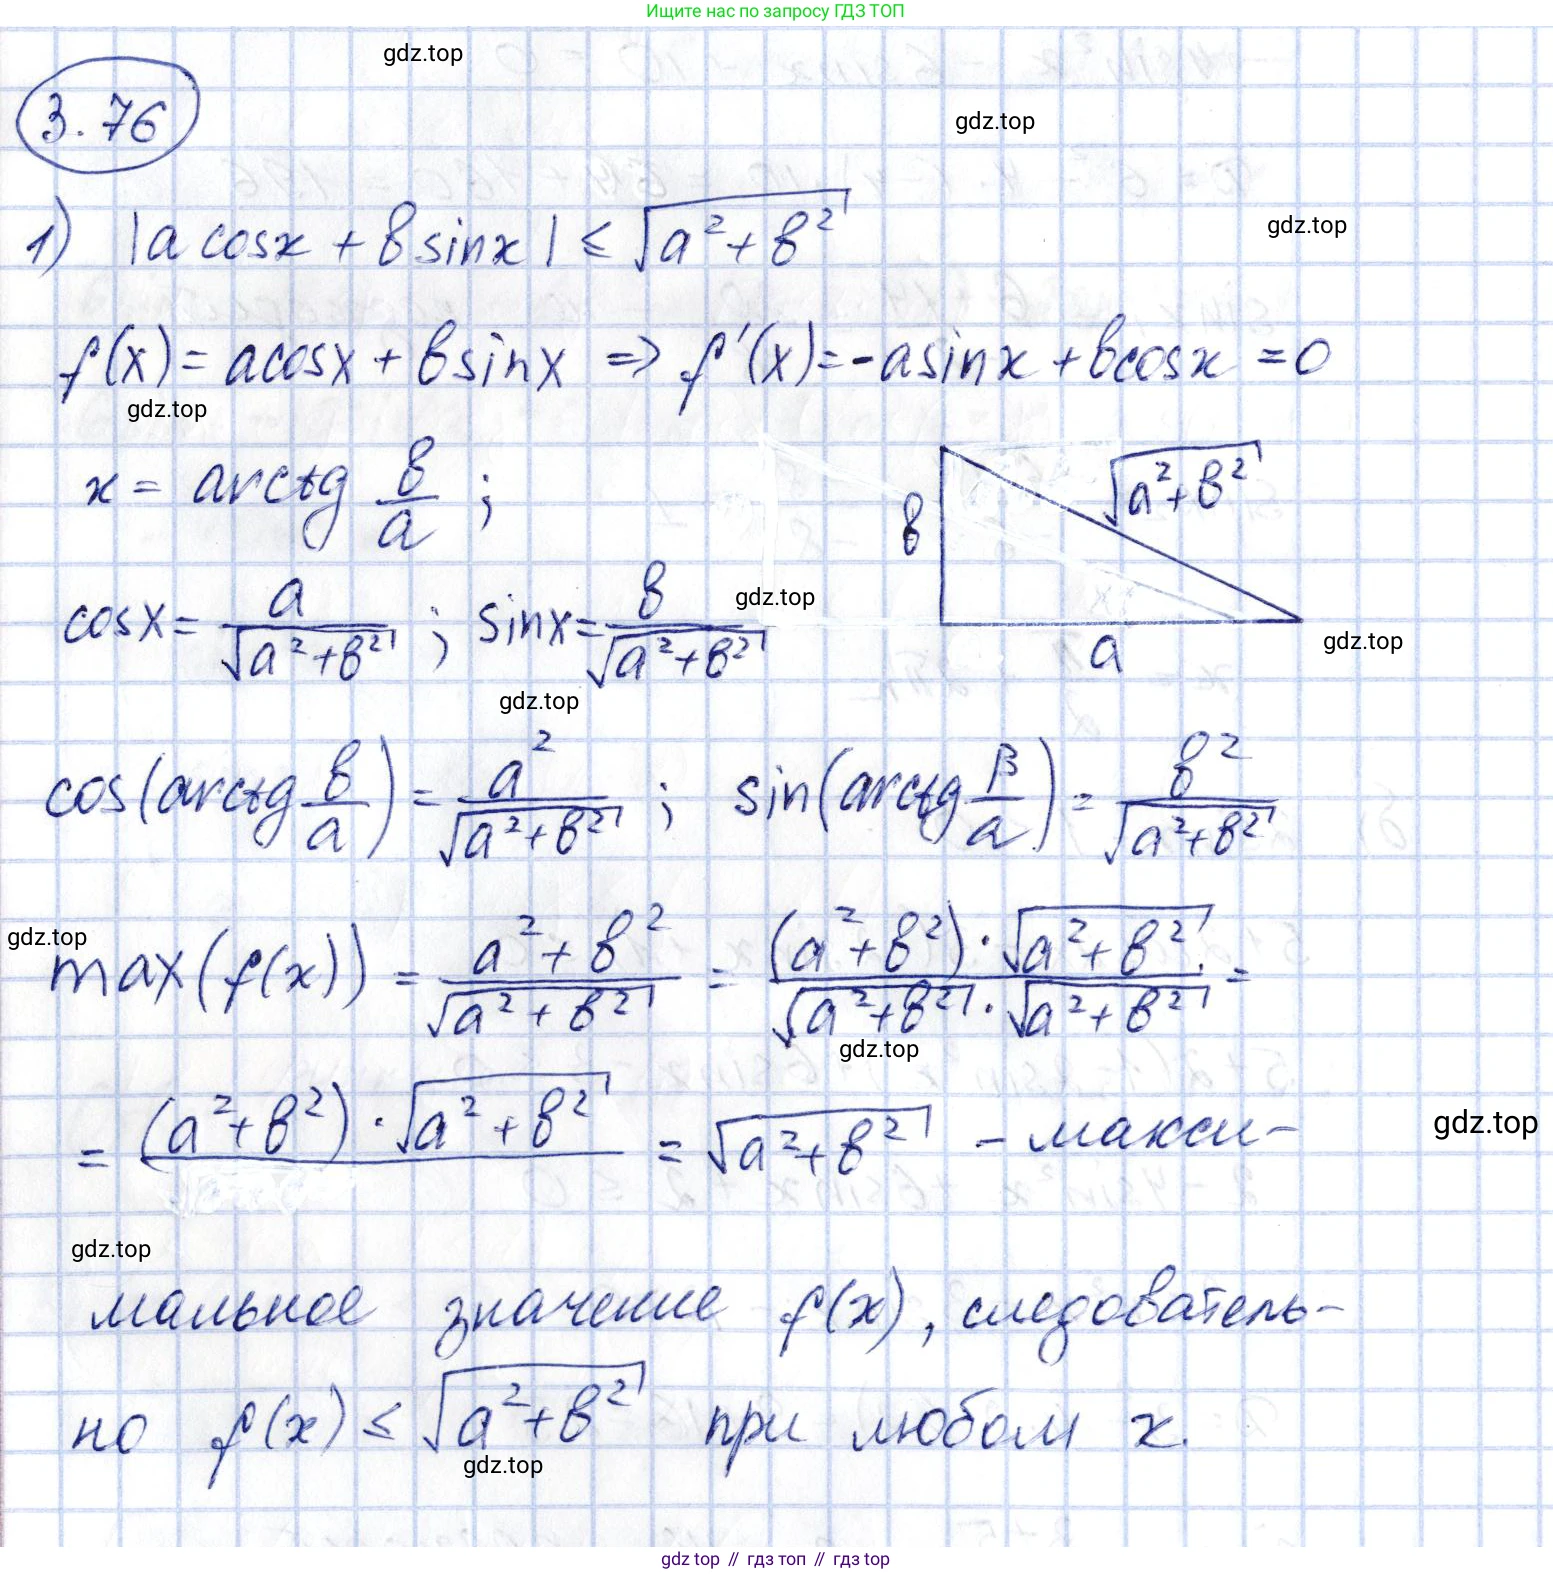 Ищите нас по запросу ГДЗ ТОП
gdz.top
3.76
gdz.top
1) |a cosx + b sinx| ≤ √(a² + b²)
gdz.top
f(x) = a cosx + b sinx ⇒ f'(x) = -a sinx + b cosx = 0
gdz.top
x = arctg b/a ;
b
√(a² + b²)
a
cosx = a/√(a² + b²) ; sinx = b/√(a² + b²)
gdz.top
gdz.top
gdz.top
cos(arctg b/a) = a²/√(a² + b²) ; sin(arctg β/a) = b²/√(a² + b²)
gdz.top
max(f(x)) = (a² + b²)/√(a² + b²) = ((a² + b²) · √(a² + b²))/(√(a² + b²) · √(a² + b²)) =
gdz.top
= (a² + b²) · √(a² + b²) = √(a² + b²) - макси-
gdz.top
gdz.top
мальное значение f(x), следователь-
но f(x) ≤ √(a² + b²) при любом x.
gdz.top
gdz top // гдз топ // гдз top